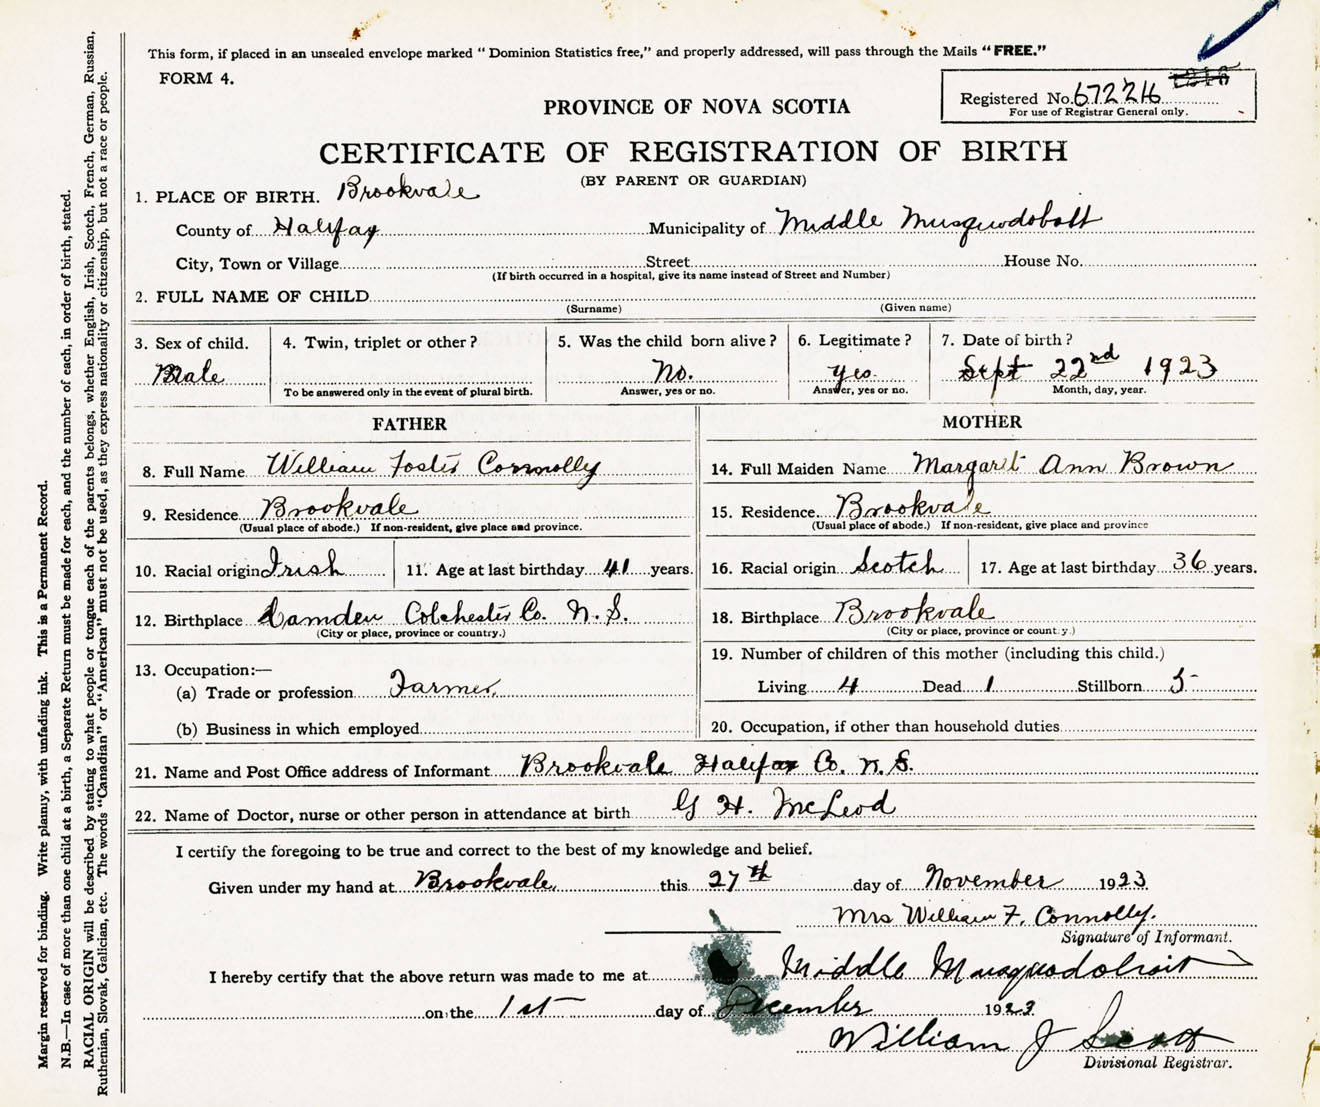 This form, if placed in an unsealed envelope marked “Dominion Statistics free,” and properly addressed, will pass through the Mails “FREE.”
FORM 4.
Registered No. 672216
For use of Registrar General only.
PROVINCE OF NOVA SCOTIA
CERTIFICATE OF REGISTRATION OF BIRTH
(BY PARENT OR GUARDIAN)
1. PLACE OF BIRTH. Brookvale
County of Halifax Municipality of Middle Musquodobott
City, Town or Village Street House No.
(If birth occurred in a hospital, give its name instead of Street and Number)
2. FULL NAME OF CHILD
(Surname) (Given name)
3. Sex of child. 4. Twin, triplet or other? 5. Was the child born alive? 6. Legitimate? 7. Date of birth?
Male No. yes. Sept 22nd 1923
To be answered only in the event of plural birth. Answer, yes or no. Answer, yes or no. Month, day, year.
FATHER MOTHER
8. Full Name William Foster Connolly 14. Full Maiden Name Margaret Ann Brown
9. Residence Brookvale 15. Residence. Brookvale
(Usual place of abode.) If non-resident, give place and province. (Usual place of abode.) If non-resident, give place and province
10. Racial origin Irish 11. Age at last birthday 41 years. 16. Racial origin Scotch 17. Age at last birthday 36 years.
12. Birthplace Camden Colchester Co. N.S. 18. Birthplace Brookvale
(City or place, province or country.) (City or place, province or country.)
13. Occupation:— 19. Number of children of this mother (including this child.)
(a) Trade or profession Farmer. Living 4 Dead 1 Stillborn 5
(b) Business in which employed 20. Occupation, if other than household duties
21. Name and Post Office address of Informant Brookvale Halifax Co. N.S.
22. Name of Doctor, nurse or other person in attendance at birth G H. McLeod
I certify the foregoing to be true and correct to the best of my knowledge and belief.
Given under my hand at Brookvale, this 27th day of November 1923
Mrs William F. Connolly.
Signature of Informant.
I hereby certify that the above return was made to me at Middle Musquodoboit
on the 1st day of December 1923
William J Scott
Divisional Registrar.
Margin reserved for binding. Write plainly, with unfading ink. This is a Permanent Record.
N.B.—In case of more than one child at a birth, a Separate Return must be made for each, and the number of each, in order of birth, stated.
RACIAL ORIGIN will be described by stating to what people or tongue each of the parents belongs, whether English, Irish, Scotch, French, German, Russian,
Ruthenian, Slovak, Galician, etc. The words “Canadian” or “American” must not be used, as they express nationality or citizenship, but not a race or people.